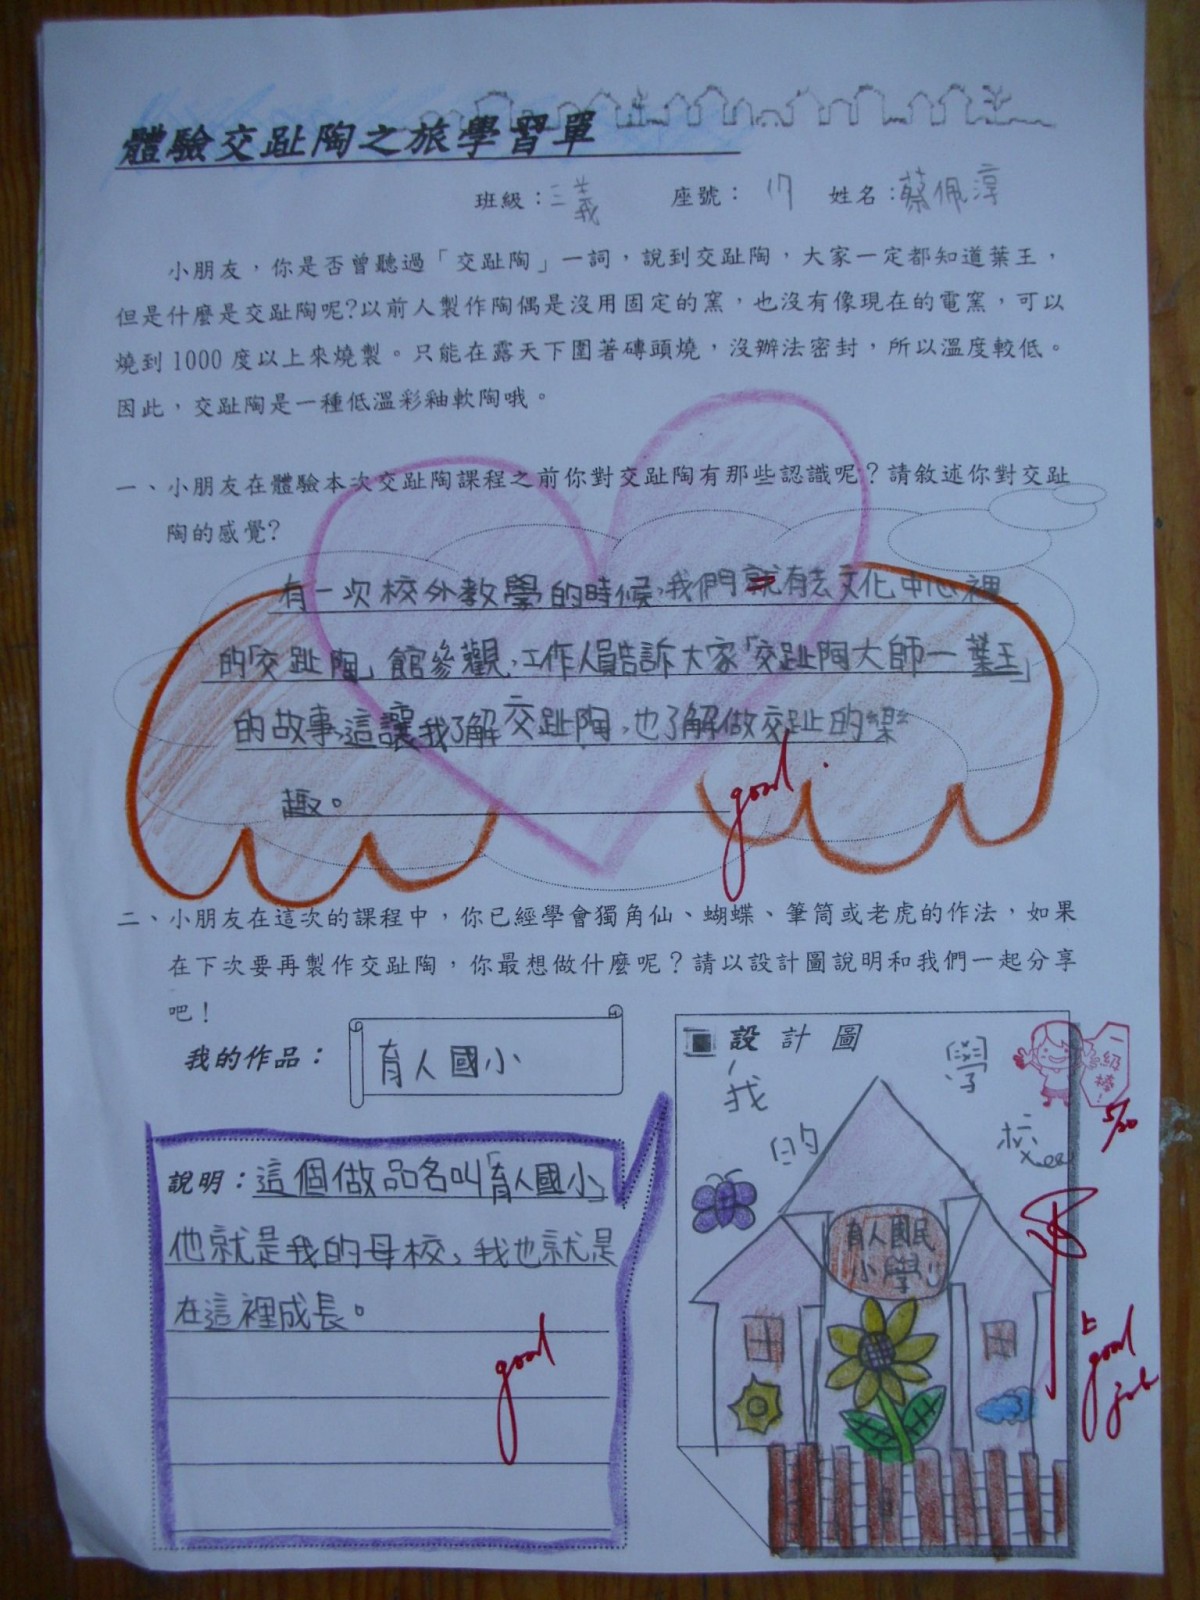 體驗交趾陶之旅學習單
班級：三義 座號：17 姓名：蔡佩淳
小朋友，你是否曾聽過「交趾陶」一詞，說到交趾陶，大家一定都知道葉王，
但是什麼是交趾陶呢?以前人製作陶偶是沒用固定的窯，也沒有像現在的電窯，可以
燒到1000度以上來燒製。只能在露天下圍著磚頭燒，沒辦法密封，所以溫度較低。
因此，交趾陶是一種低溫彩釉軟陶哦。
一、小朋友在體驗本次交趾陶課程之前你對交趾陶有那些認識呢？請敘述你對交趾
陶的感覺?
有一次校外教學的時候，我們就有去文化中心裡
的「交趾陶」館參觀，工作人員告訴大家「交趾陶大師—葉王」
的故事，這讓我了解交趾陶，也了解做交趾的樂
趣。
good
二、小朋友在這次的課程中，你已經學會獨角仙、蝴蝶、筆筒或老虎的作法，如果
在下次要再製作交趾陶，你最想做什麼呢？請以設計圖說明和我們一起分享
吧！
我的作品：育人國小
說明：這個做品名叫「育人國小」
他就是我的母校，我也就是
在這裡成長。
good
設計圖
我的學校
一級棒！
5/20
育人國民
小學
good
job